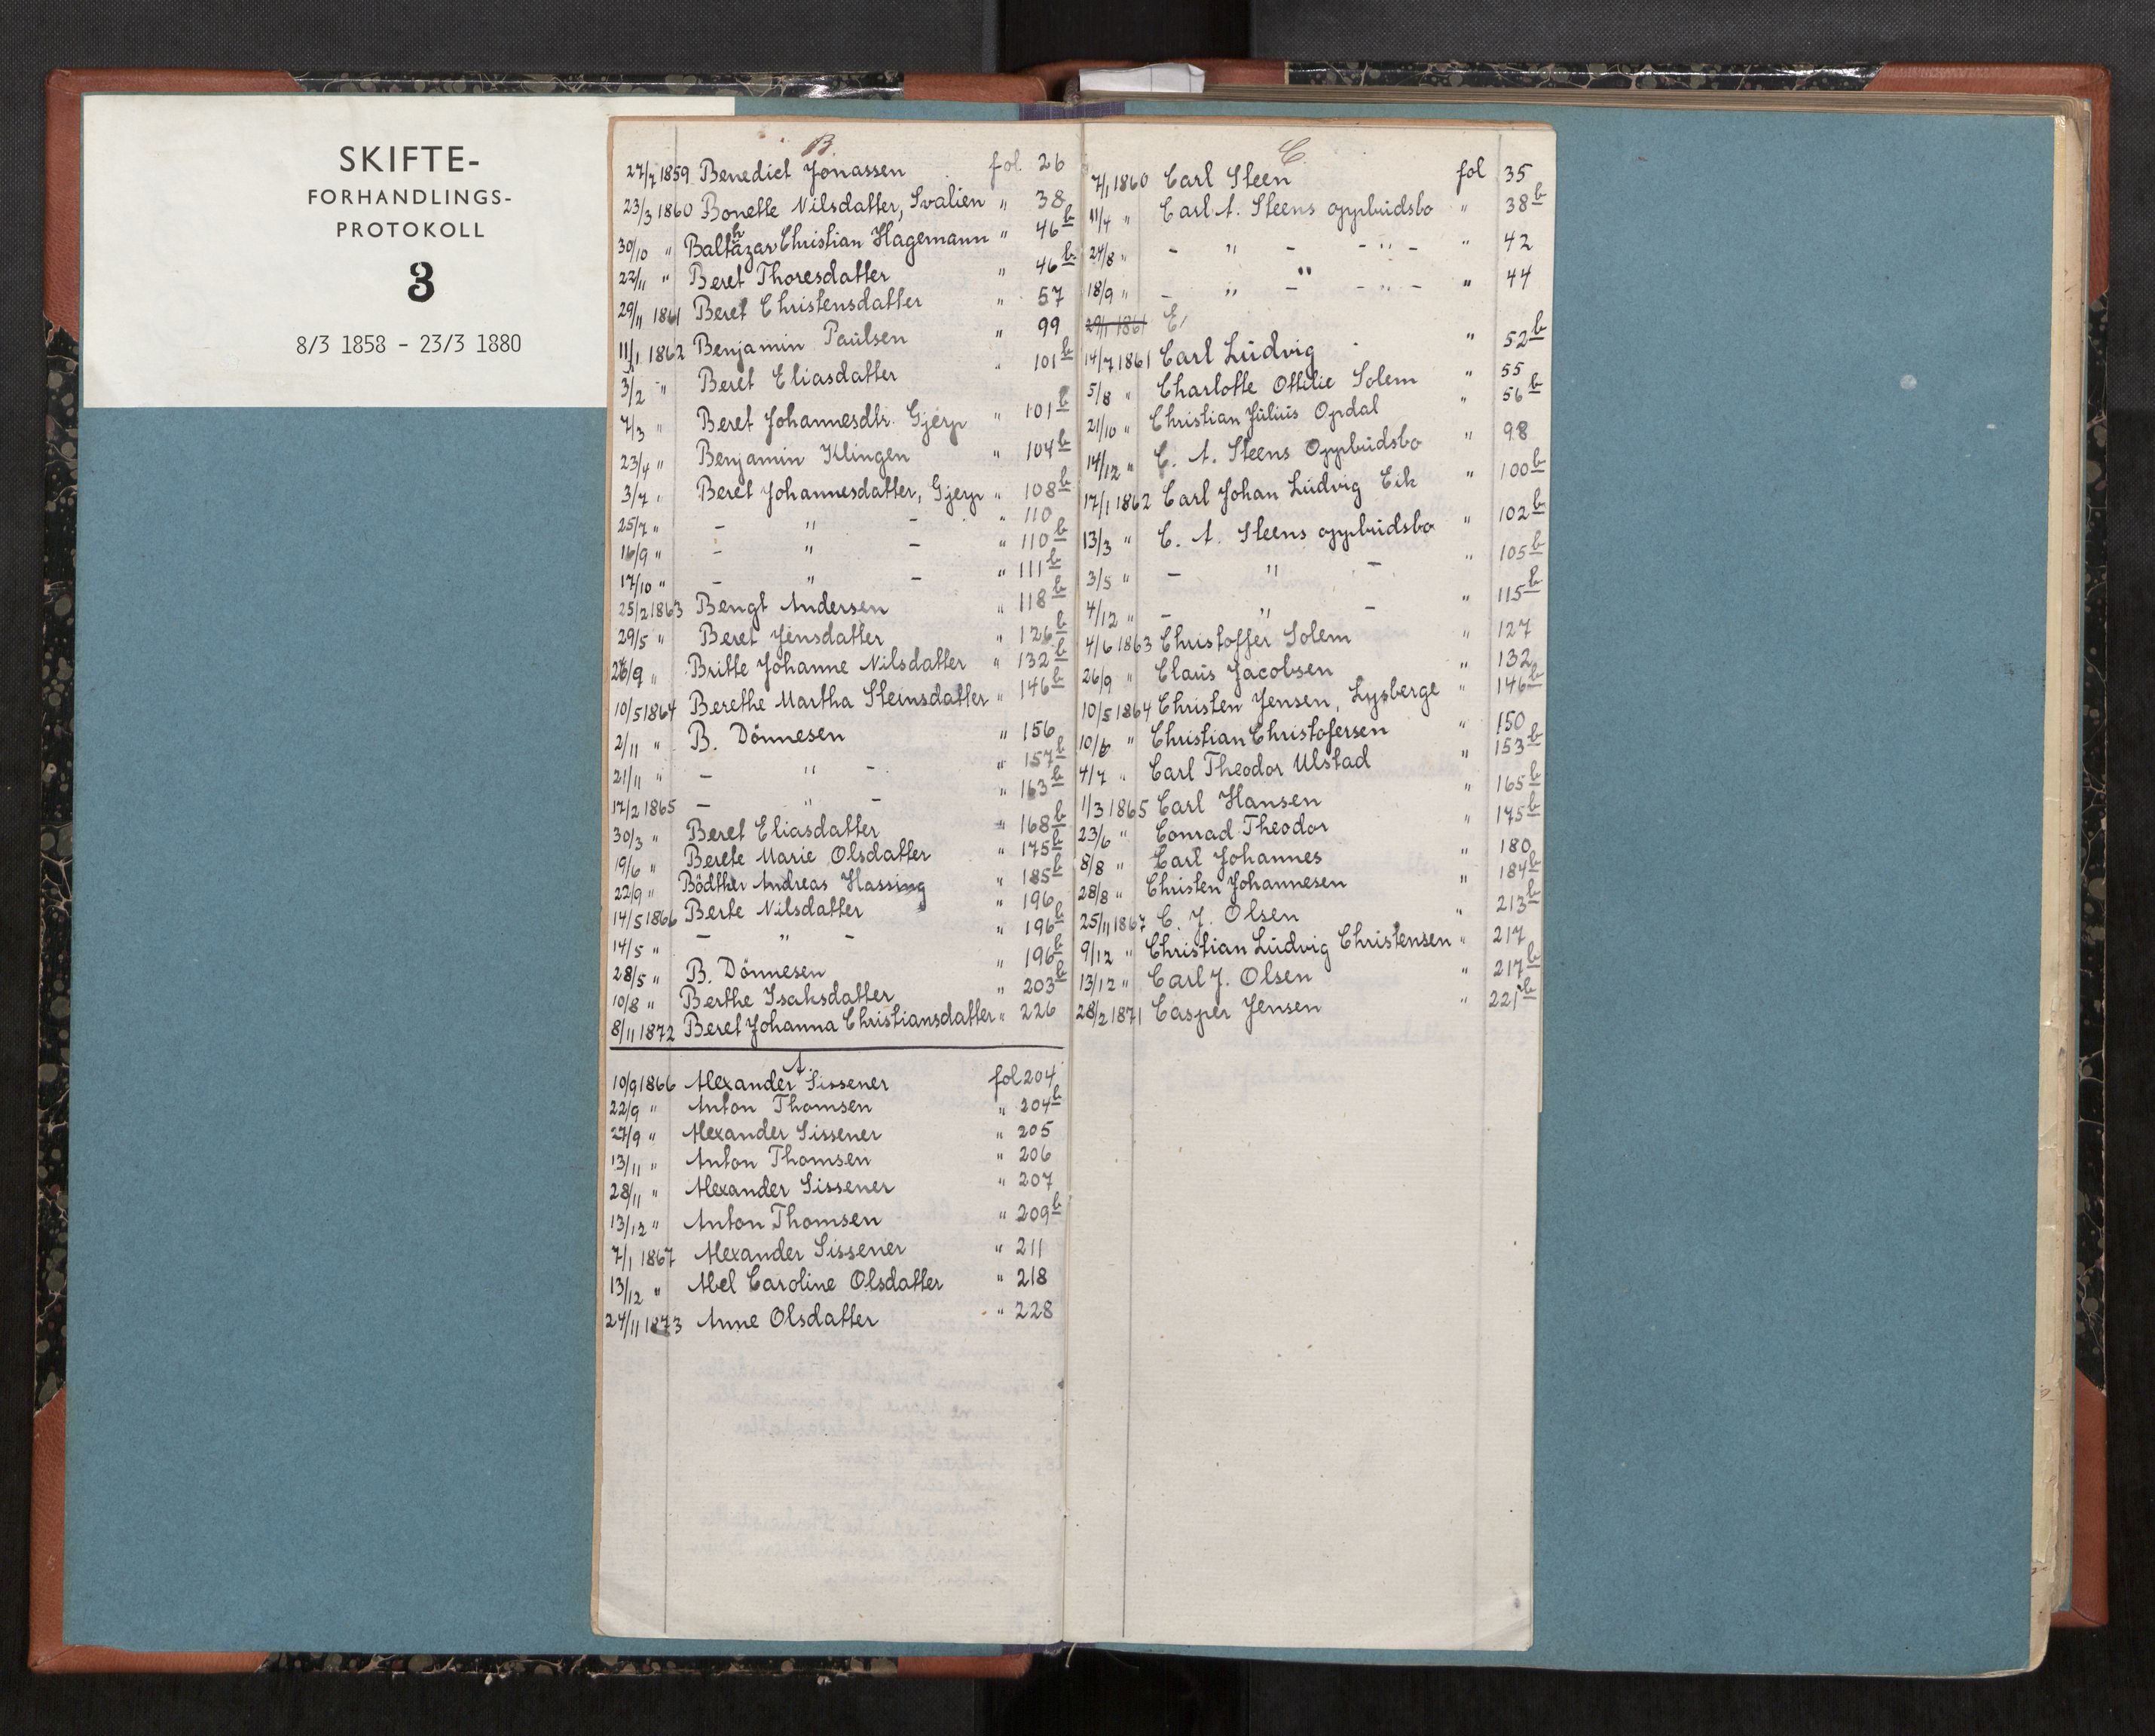 SKIFTE-
FORHANDLINGS-
PROTOKOLL
3
8/3 1858 - 23/3 1880
B.
27/7 1859 Benedict Jonassen fol. 26
23/3 1860 Bonette Nilsdatter, Svalien " 38
30/10 " Balthazar Christian Hagemann " 46b
22/11 " Beret Thoresdatter " 46b
29/11 1861 Beret Christensdatter " 57
11/1 1862 Benjamin Paulsen " 99
3/2 " Beret Eliasdatter " 101b
7/3 " Beret Johannesdtr. Gjerp " 101b
23/4 " Benjamin Klingen " 104b
3/7 " Beret Johannesdatter, Gjerp " 108b
25/7 " - " - " 110
16/9 " - " - " 110b
17/10 " - " - " 111b
25/2 1863 Bengt Andersen " 118b
29/5 " Beret Jensdatter " 126b
26/9 " Britte Johanne Nilsdatter " 132b
10/5 1864 Berethe Martha Steinsdatter " 146b
2/11 " B. Dönnesen " 156
21/11 " - " - " 157b
17/2 1865 - " - " 163b
30/3 " Beret Eliasdatter " 168b
19/6 " Berete Marie Olsdatter " 175b
22/9 " Bödtker Andreas Hassing " 185b
14/5 1866 Berte Nilsdatter " 196
14/5 " - " - " 196b
28/5 " B. Dönnesen " 196b
10/8 " Berthe Isaksdatter " 203b
8/11 1872 Beret Johanna Christiansdatter " 226
A.
10/9 1866 Alexander Sissener fol 204
22/9 " Anton Thomsen " 204b
27/9 " Alexander Sissener " 205
13/11 " Anton Thomsen " 206
28/11 " Alexander Sissener " 207
13/12 " Anton Thomsen " 209b
7/1 1867 Alexander Sissener " 211
13/12 " Abel Caroline Olsdatter " 218
24/11 1873 Anne Olsdatter " 228
C.
7/1 1860 Carl Steen fol 35
11/4 " Carl A. Steens oppbudsbo " 38b
24/8 " - " - - " - " 42
18/9 " - " - - " - " 44
29/1 1861 E
14/7 1861 Carl Ludvig " 52b
5/8 " Charlotte Ottilie Solem " 55
21/10 " Christian Julius Opdal " 56b
14/12 " C. A. Steens Oppbudsbo " 98
17/1 1862 Carl Johan Ludvig Eik " 100b
13/3 " C. A. Steens oppbudsbo " 102b
3/5 " - " - " 105b
4/12 " - " - " 115b
4/6 1863 Christoffer Solem " 127
26/9 " Claus Jacobsen " 132
10/5 1864 Christen Jensen, Lysberge " 146b
10/6 " Christian Christofersen " 150
4/7 " Carl Theodor Ulstad " 153b
1/3 1865 Carl Hansen " 165b
23/6 " Conrad Theodor " 175b
8/8 " Carl Johannes " 180
28/8 " Christen Johannesen " 184b
25/11 1867 C. J. Olsen " 213b
9/12 " Christian Ludvig Christensen " 217
13/12 " Carl J. Olsen " 217b
28/2 1871 Casper Jensen " 221b